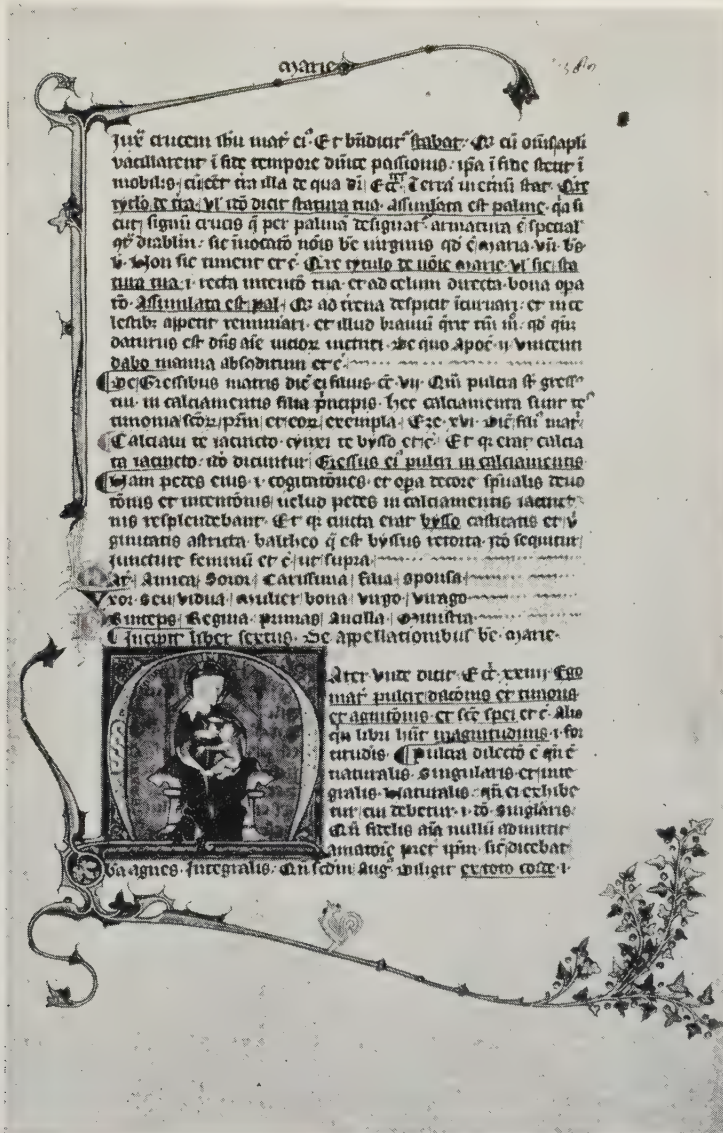 marie
Juxͭ crucem ihū matͬ eiꝰ Et bn̄dicitͬ stabat· Qͥ cū om̄s apl̓i
vacillarent ī fide tempore dn̄ice passionis· ip̄a ī fide stetit ī
mobilis· illa de qua dr̄ Ecc̄ⁱ· Terra in etnū stat· Qͬe
tytl̓o de tͬra· vl̓ iō dicit statura tua· assimilata est palme· qͣ si
cut signū crucis q̄ per palmā designatͬ armatura ē special̓
9tͣ diablm̄· sic inuocato nōis be uirginis qd̓ ē maria· vn̄ be
Non sic timent et c̄· Qͬe tytulo de nōie marie· vl̓ sic sta
tura tua· i· recta intentō tua· et ad celum directa· bona opa
Assimilata est pal· ad tͬrena despicit īcuruari· et in ce
lestibꝫ appetit remun̄ari· et illud brauiū
daturus est dn̄s aīe De quo Apoc̄· ij· vincenti
dabo manna absc̄ditum et c̄·
¶ De Gressibus matris dic̄ ei filius· cc̄· vij· Qm̄ pulcrͥ st̄ gressꝰ
tui· in calciamentis filia pͥncipis· hec calciamenta sunt tesͭ
timonia sc̄oꝝ pͬm̄ et eoꝝ exempla· Eze· xvi· dic̄ fili matͥ
¶ Calciaui te iacincto· cinxi te bysso et c̄· Et qͥ erat calcia
ta iacincto· iō dicuntur Gressus eiꝰ pulcri in calciamentis·
¶ Nam pedes eius· i· cogitatōnes· et opa decore spūalis deuo
tōnis et intentōnis uelud pedes in calciamentis iacincti
nis resplendebant· Et qͥ cincta erat bysso castitatis et vͥ
ginitatis astricta· baltheo q̄ est byssus retorta· iō sequitur
juncture feminū et c̄· ut supra·
Matͬ· Amica· Soror· Carissima· filia· sponsa·
Vxor· seu vidua· Mulier bona· virgo· virago·
Princeps· Regina· primas· Ancilla· Ministra·
¶ Incipit liber sextus· De appellationibus be· marie·
Mater vnde dicit· Ecc̄ⁱ· xxiiij· Ego
matͬ pulcre dilc̄onis et timoris
et agnitōnis· et sc̄e spei et c̄· Alie
qn̄ libri hn̄t magnitudinis· i· for
titudis· ¶ Pulcra dilectō ē que ē
naturalis· singularis· et inte
gralis· Naturalis· qn̄ ei exhibe
tur cui debetur· i· dō· singl̓aris·
Qn̄ fidelis aīa nullū admittit
amatorē preter ip̄m· sic̄ dicebat
ba agnes· Integralis· Qn̄ scd̄m Aug· diligit· ex toto corde· i·